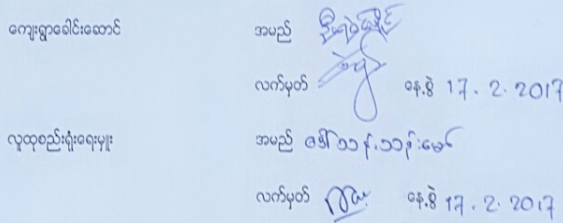 ကျေးရွာခေါင်းဆောင် အမည်
လက်မှတ် နေ့စွဲ 17.2.2017
လူထုစည်းရုံးရေးမှူး အမည် ဒေါ်သန်းသန်းမော်
လက်မှတ် နေ့စွဲ 17.2.2017